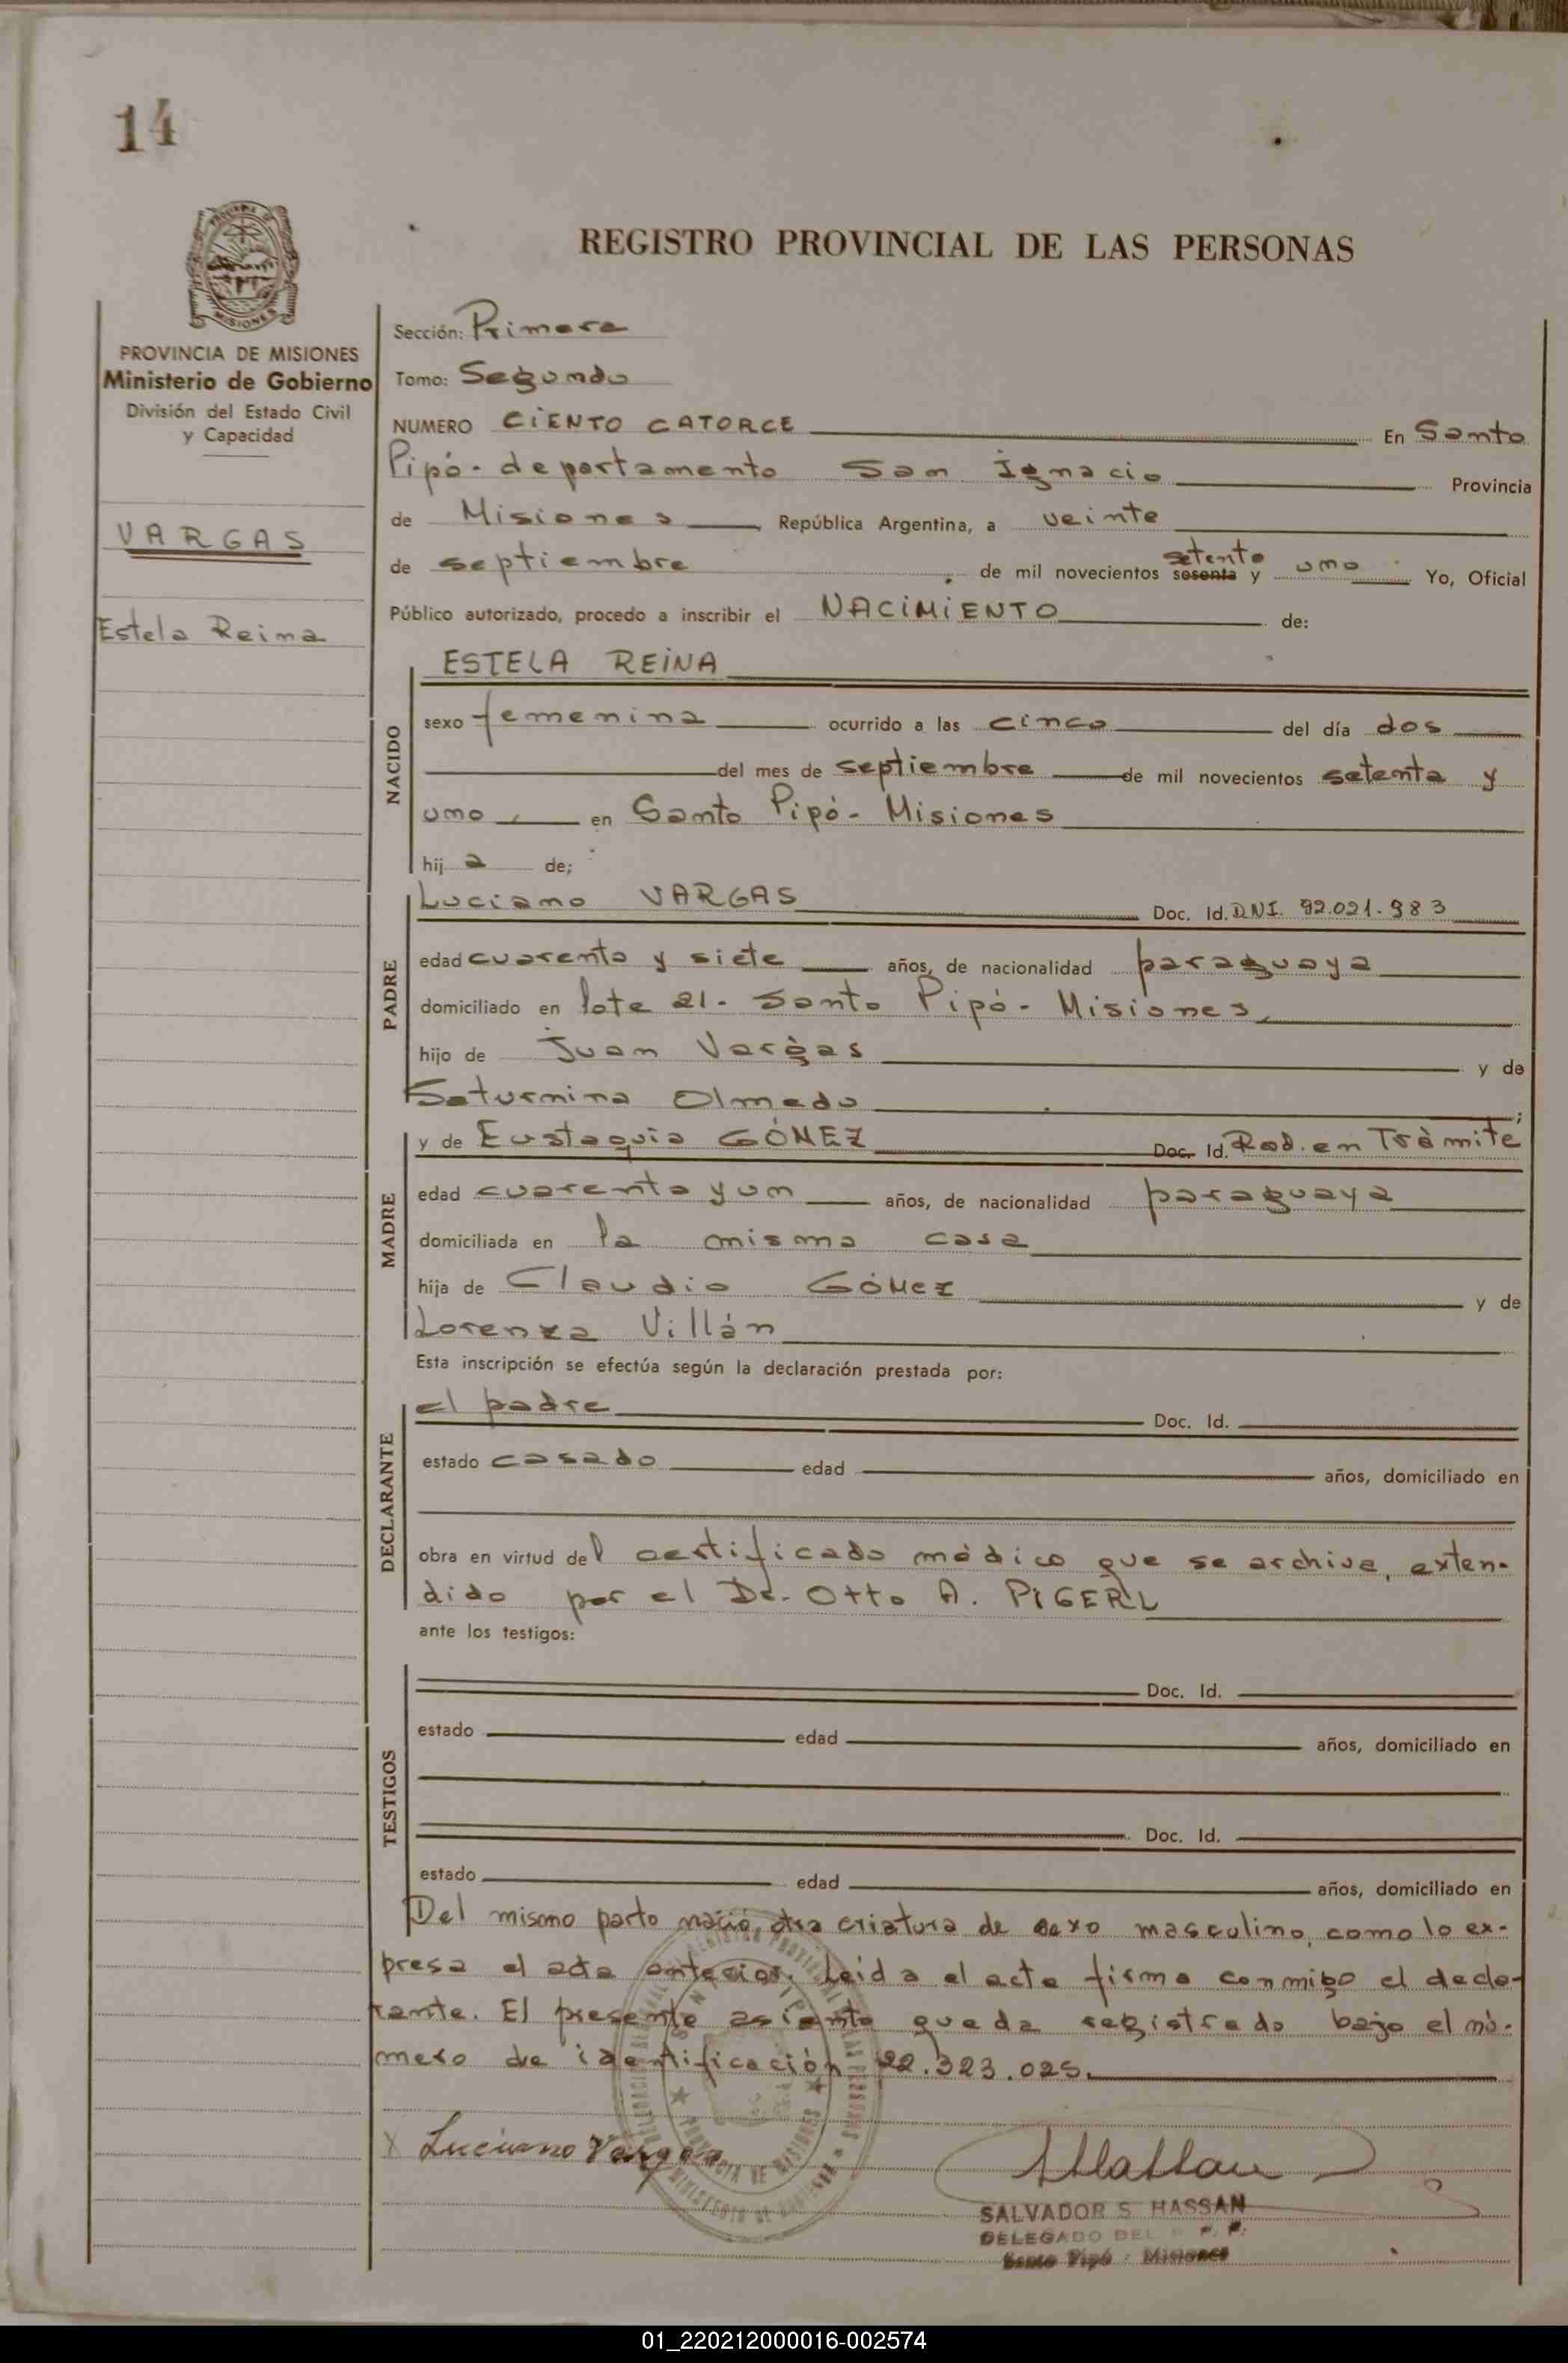 14
REGISTRO PROVINCIAL DE LAS PERSONAS
MISIONES
PROVINCIA DE MISIONES
Ministerio de Gobierno
División del Estado Civil
y Capacidad
VARGAS
Estela Reina
Sección: Primera
Tomo: Segundo
NUMERO CIENTO CATORCE En Santo
Pipó - departamento San Ignacio Provincia
de Misiones, República Argentina, a veinte
de septiembre, de mil novecientos sesenta setenta y uno Yo, Oficial
Público autorizado, procedo a inscribir el NACIMIENTO de:
NACIDO
ESTELA REINA
sexo femenina ocurrido a las cinco del día dos
del mes de septiembre de mil novecientos setenta y
uno, en Santo Pipó - Misiones
hij a de;
PADRE
Luciano VARGAS Doc. Id. DNI. 92.021.983
edad cuarenta y siete años, de nacionalidad paraguaya
domiciliado en lote 21 - Santo Pipó - Misiones,
hijo de Juan Vargas y de
Saturnina Olmedo;
MADRE
y de Eustaquia GÓMEZ Doc. Id. Rad. en Trámite
edad cuarenta y un años, de nacionalidad paraguaya
domiciliada en la misma casa
hija de Claudio Gómez y de
Lorenza Villán
Esta inscripción se efectúa según la declaración prestada por:
DECLARANTE
el padre Doc. Id.
estado casado edad años, domiciliado en
obra en virtud del certificado médico que se archiva, exten-
dido por el Dr. Otto A. PIGERL
ante los testigos:
TESTIGOS
Doc. Id.
estado edad años, domiciliado en
Doc. Id.
estado edad años, domiciliado en
Del mismo parto nació otra criatura de sexo masculino, como lo ex-
presa el acta anterior. Leida el acta firma conmigo el decla-
rante. El presente asiento queda registrado bajo el nú-
mero de identificación 22.323.025.
X Luciano Vargas
SALVADOR S. HASSAN
DELEGADO DEL R. P. P.
Santo Pipó - Misiones
PROVINCIA DE MISIONES
01_220212000016-002574